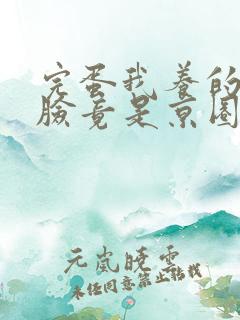 完蛋我养的
脸竟是京圈
元岚晚雲
未经同意禁止转载